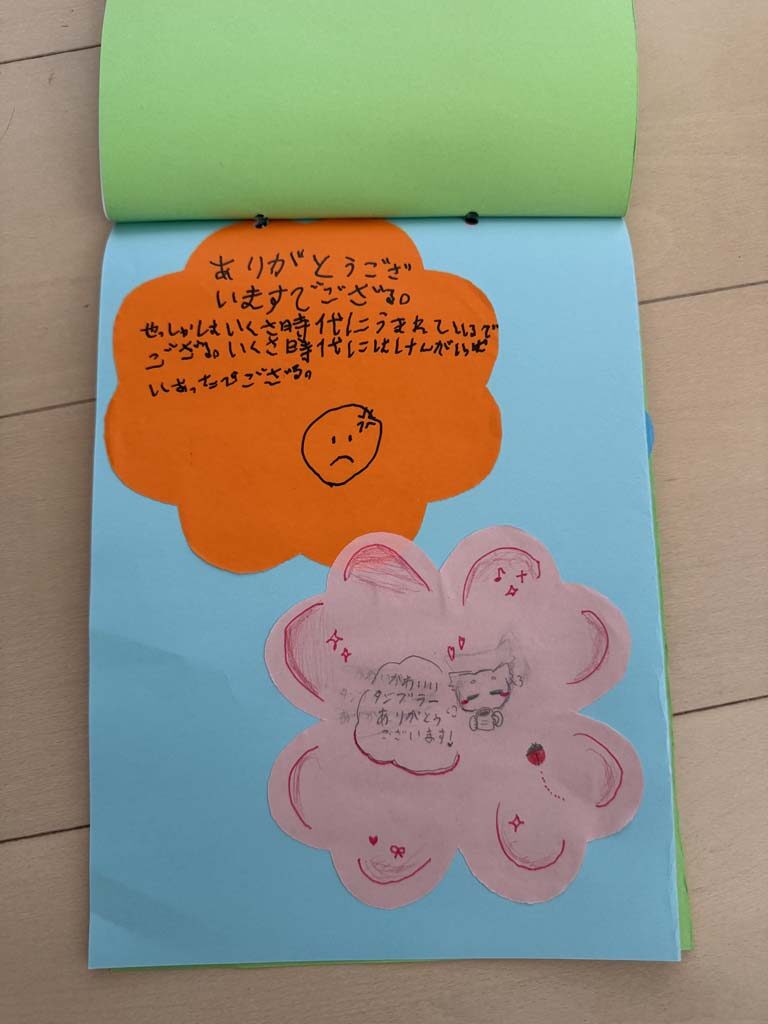 ありがとうござ
いますでござる。
やっしかしはいくさ時代にうまれているで
ござる。いくさ時代にはけんがいっぱ
いあったでござる。
かわいい
タンブラー
ありがとう
ございます!